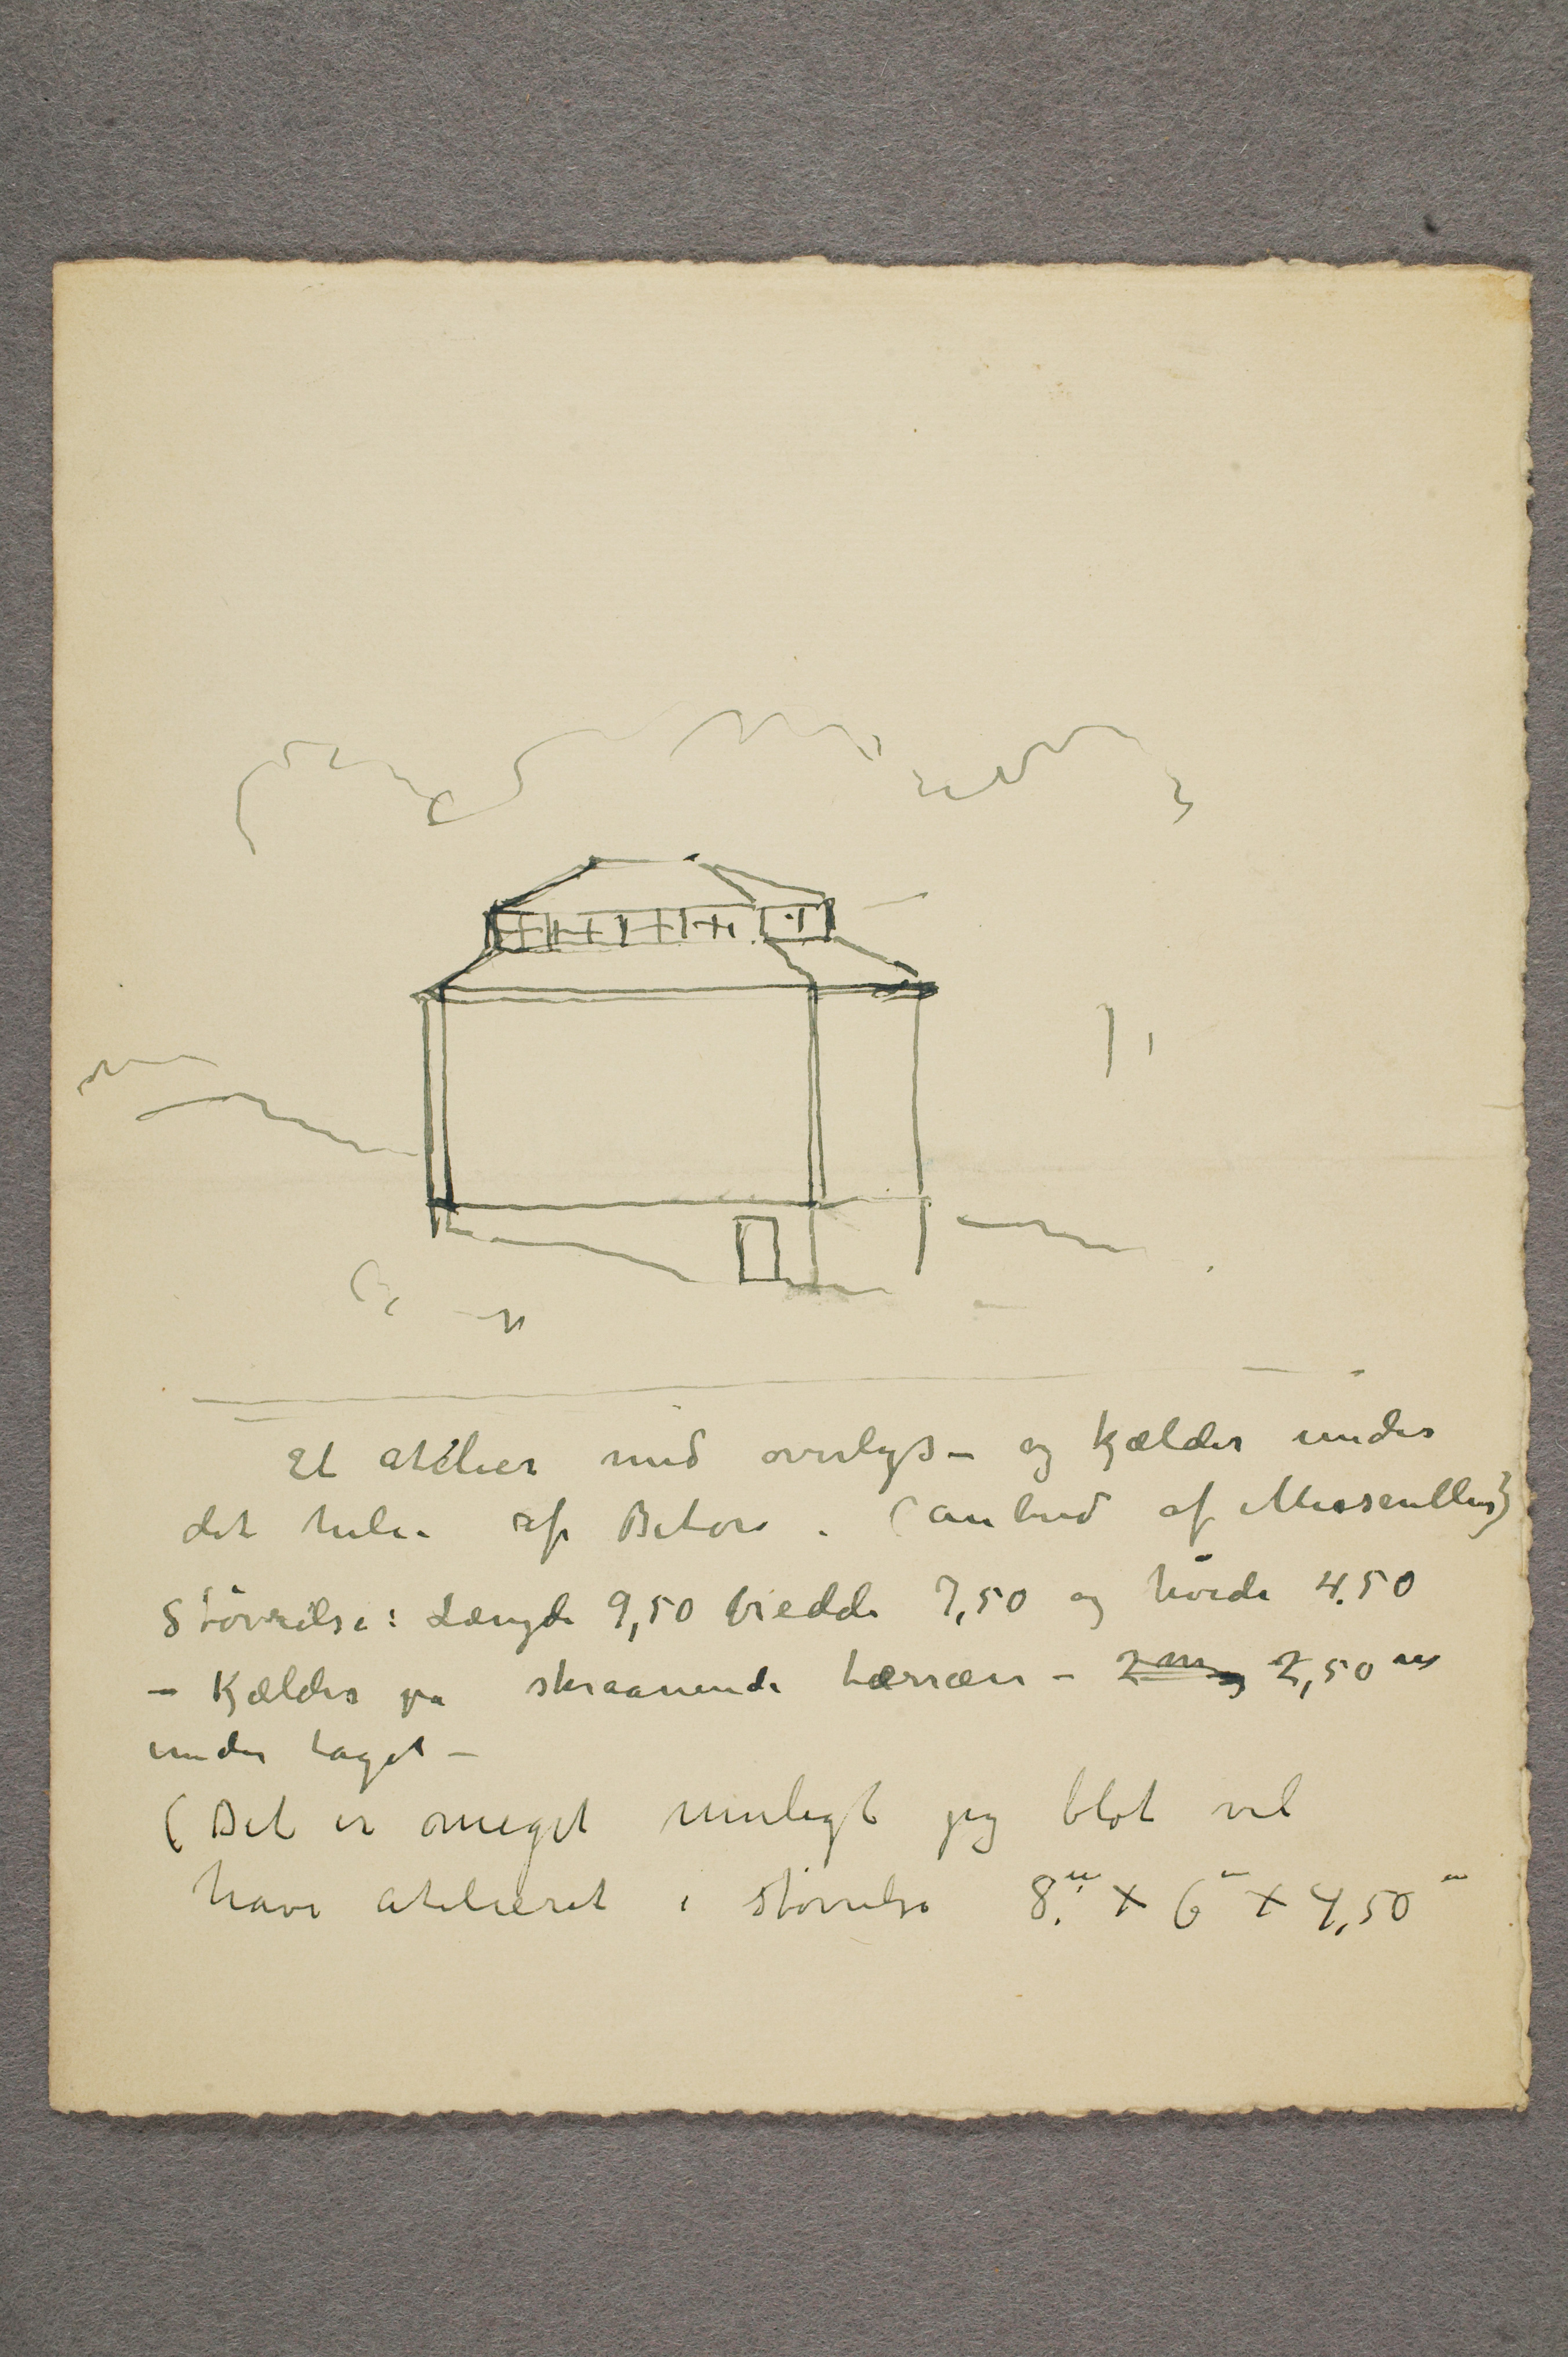 Et atelier med overlys – og kjælder under
det hele. af Beton. (anbud af
Størrelse: Længde 9,50 bredde 7,50 og høide 4.50
– Kjælder på skraanende tærræn – 2 m 2,50 m
under taget –
(Det er meget muligt jeg blot vil
have atelieret i størrelse 8.m × 6m × 4,50m